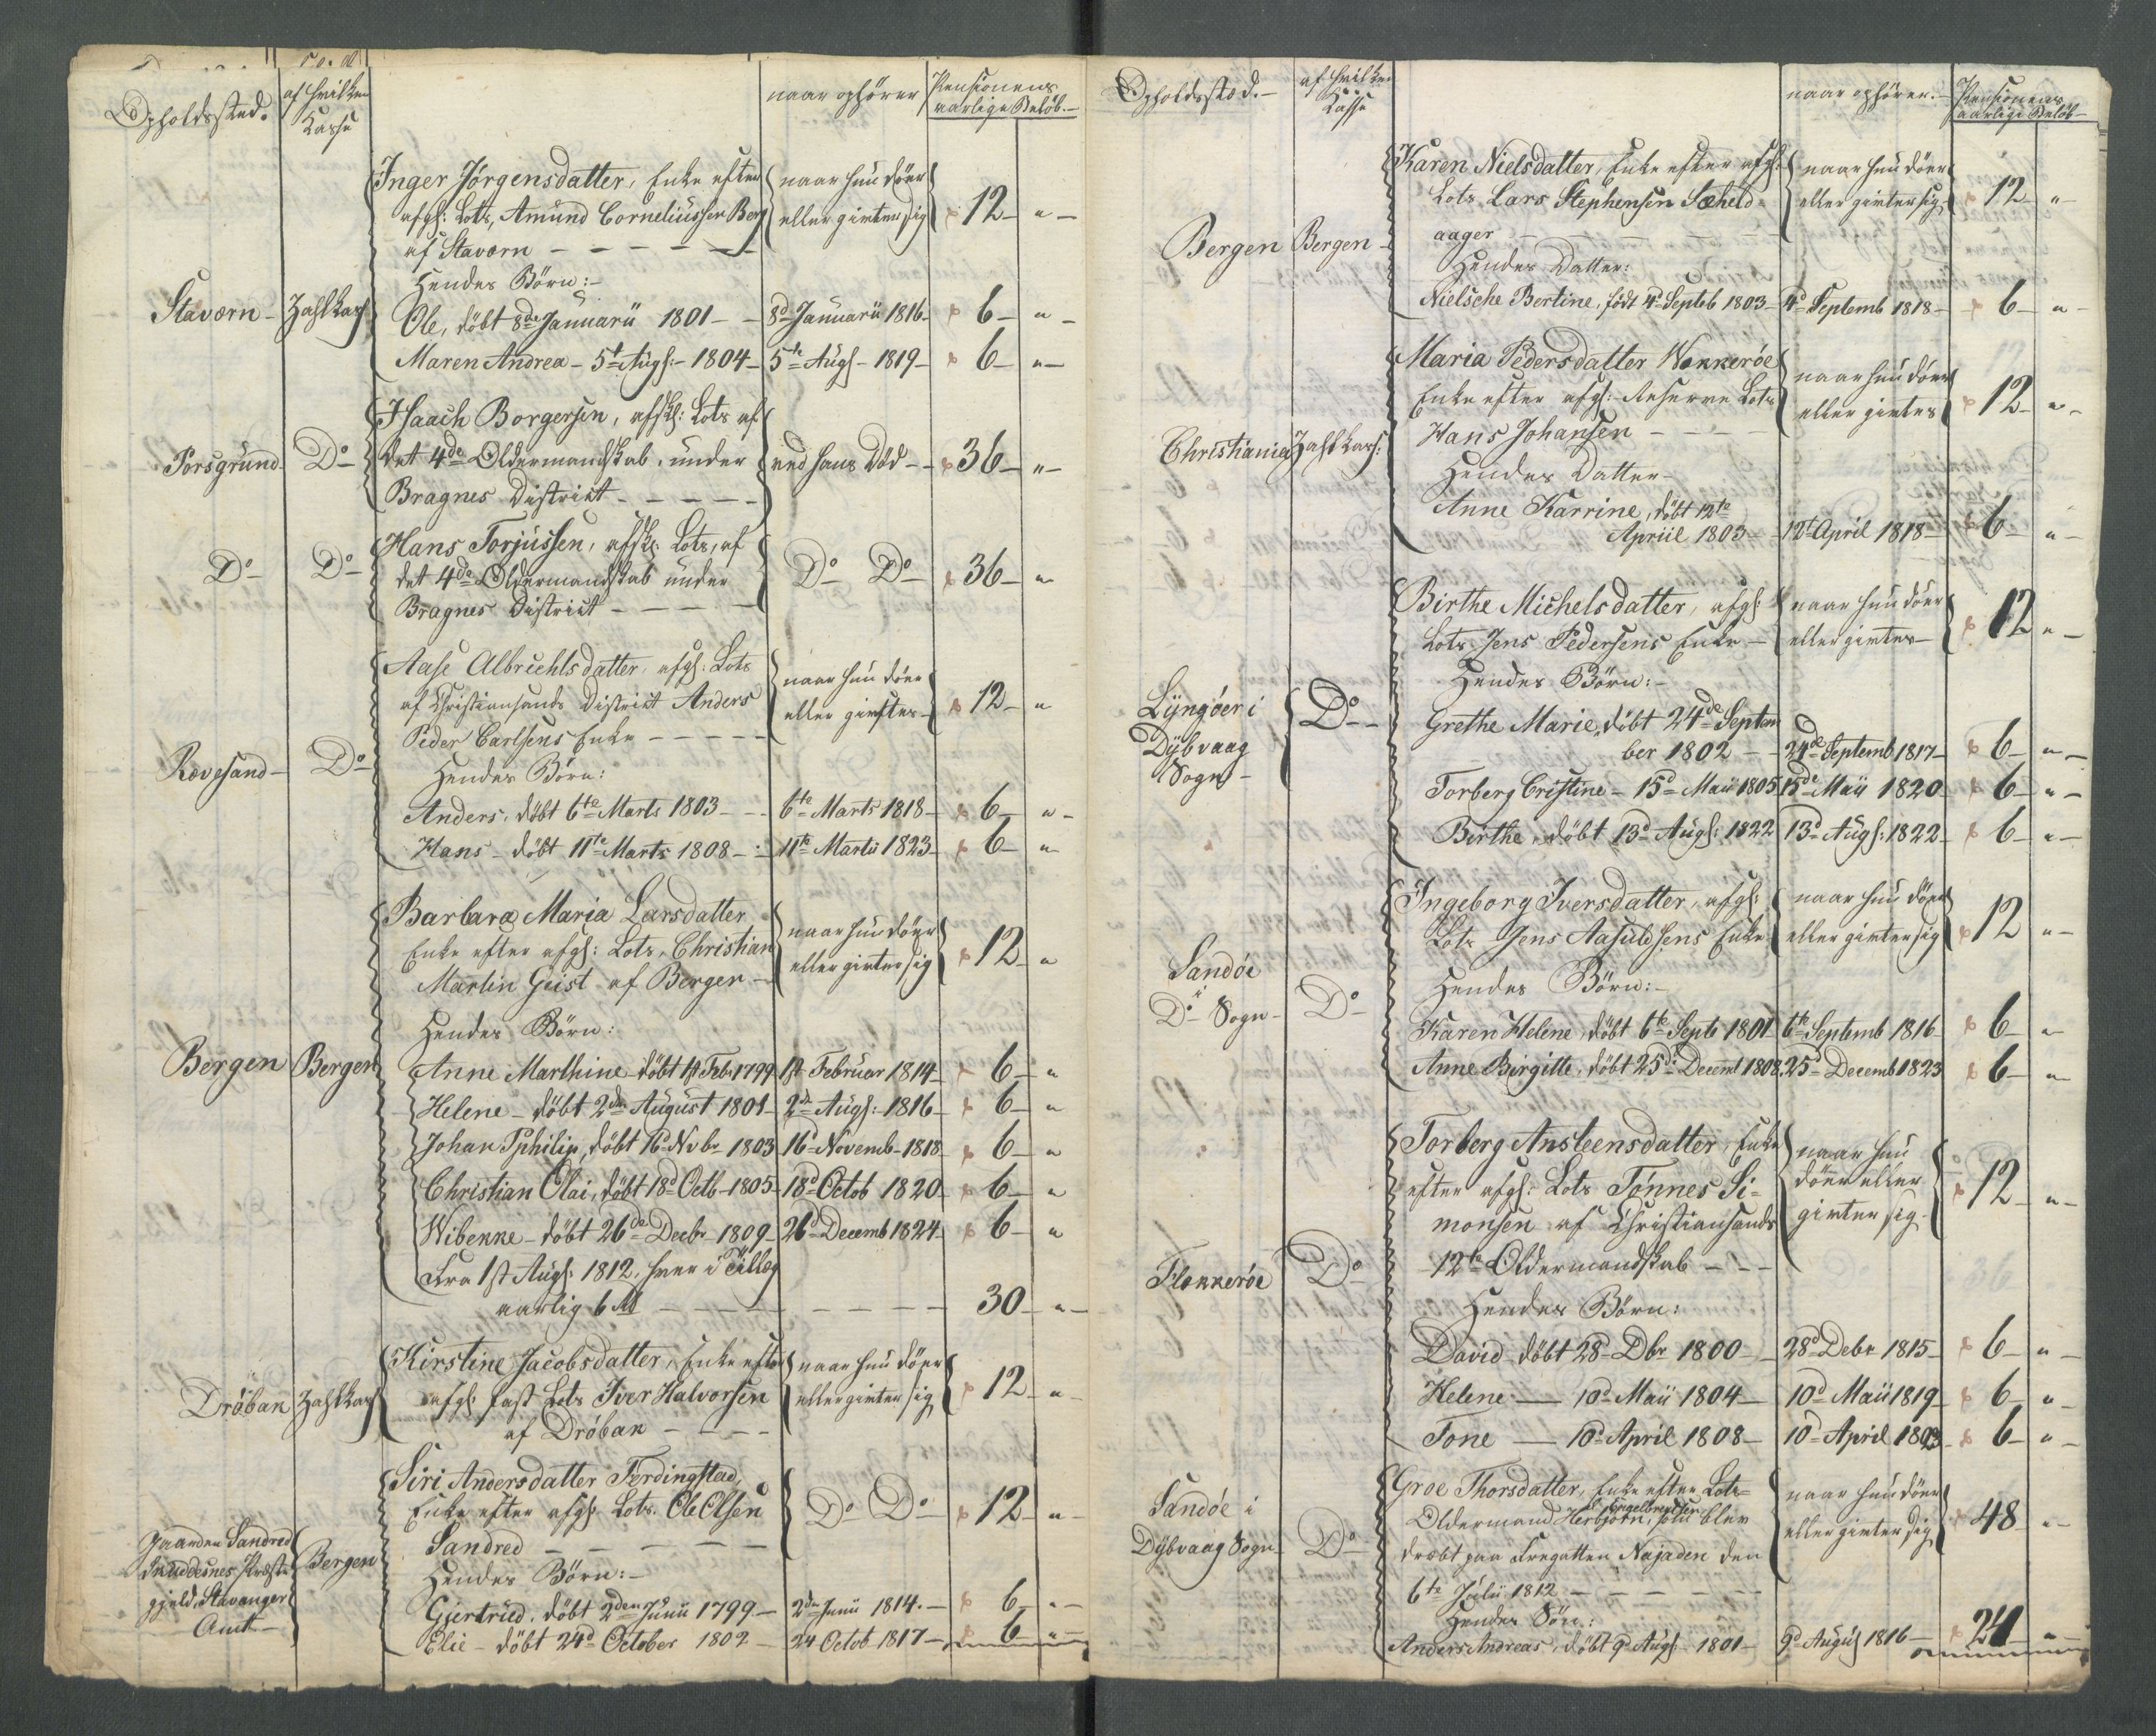 Opholdssted.
af hvilken
Kasse
naar ophörer
Pensionens
aarlige Belöb.
Inger Jörgensdatter, Enke efter naar hun döer
afgl: Lots, Amund Corneliussen Berg eller givter sig 12 - " -
af Stavern - - - - -
Hendes Börn:-
Stavern - Zahlkass:
Ole, döbt 8de Januarii 1801 - - 8d Januarii 1816 - 6 - " -
Maren Andrea - 5t Augs:- 1804 - 5te Augs - 1819 - 6 - " -
Isaach Borgersen, afskl: Lots af
Porsgrund - Do - det 4de Oldermandskab, under ved hans Död - - 36 - " -
Bragnes District - - - - -
Hans Torjussen, afskl: Lots, af
Do - Do - det 4de Oldermandskab under Do - Do - 36 - "
Bragnes District - - - -
Aase Albrechtsdatter, afgl: Lots naar hun döer
af Christiansands District Anders eller giftes - 12 - "
Peder Carlsens Enke - - - - -
Rævesand - Do - Hendes Börn:
Anders, döbt 6te Marts 1803 - - 6te Marts 1818 - 6 - " -
Hans - döbt 11te Marts 1808 - - 11te Martii 1823 - 6 - "
Barbara Maria Larsdatter
Enke efter afgl: Lots, Christian naar hun döer
Martin Gust af Bergen - eller givter sig 12 - "
Hendes Börn:
Bergen Bergen Anne Marthine döbt 14 Feb. 1799 14 Februar 1814 - 6 - "
Helene - döbt 2den August 1801 - 2de Augs: 1816 - 6 - "
Johan Pphilip, döbt 16d Nvbr 1803 16d Novemb - 1818 6 - "
Christian Olai, döbt 18d Octb - 1805 - 18d Octob 1820 - 6 - "
Wibekke - döbt 26de Decbr 1809 - 26d Decemb 1824 - 6 - "
Fra 1st Augs: 1812, hver i Tillæg
aarlig 6 - - - - - - - - 30 - " -
Kirstine Jacobsdatter, Enke efter naar hun döer
Dröbak Zahlkass afgl: fast Lots Iver Halvorsen eller givter sig 12 - " -
af Dröbak - - - -
Siri Andersdatter Ferdingstad,
Enke efter afgl: Lots. Ole Olsen Do - Do - 12 - " -
Sandred - - - - -
Gaarden Sandred
Skudesnes Præste
gjeld, Stavanger
Amt - Bergen Hendes Börn:-
Gjertrud, döbt 2den Junii 1799 - 2de Junii 1814. - 6 - " -
Elie - döbt 24d October 1802 - 24 Octob 1817 - 6 - " -
Opholdssted. -
af hvilken
Kasse
naar ophörer. -
Pensionens
aarlige Belöb -
Karen Nielsdatter, Enke efter afgl: naar hun döer
Lots Lars Stephensen Sæheld- eller givter sig 12 - " -
Bergen Bergen - aager - - - - -
Hendes Datter:
Nielsche Bertine, födt 4d Septeb 1803 - 4d Septemb 1818 - 6 - " -
Maria Pedersdatter Wækkeröe
Enke efter afgl: Reserve Lots naar hun döer
Hans Johansen - - - - eller givtes 12 - " -
Christiania Zahlkass: Hendes Datter -
Anne Karrine, döbt 12te
Apriil 1803 - 12t April 1818 - 6 - " -
Birthe Michelsdatter, afgl: naar hun döer
Lots Jens Pedersens Enke - eller givtes - 12 " -
Hendes Börn:-
Lyngöer i
Dÿbvaag
Sogn - Do - Grethe Marie, döbt 24de Septem
ber 1802 - - 24de Septemb 1817 - 6 - " -
Torberg Cristine - 15d Maii 1805 15de Maii 1820 - 6 - " -
Birthe, döbt 13d Augs: 1822 13d Augs: 1822 - 6 - " -
Ingeborg Iversdatter, afgl: naar hun döer
Lots Jens Aasulds:ens Enke eller givter sig 12 " -
Sandöe
i
Do Sogn - Do - Hendes Börn:-
Karen Helene, döbt 6te Septb 1801 6te Septemb 1816 - 6 - " -
Anne Birgitte, döbt 25de Decemb 1808. 25d Decemb 1823 6 - " -
Torberg Ansteensdatter, Enke naar hun
efter afgl: Lots Tönnes Si- döer eller 12 - " -
monsen af Christiansands givter sig -
Flekkeröe Do - 12te Oldermandskab - - -
Hendes Börn:
David döbt 28d Dbr 1800 - 28d Debr 1815 - 6 - " -
Helene - 10d Maii 1804 - 10d Maii 1819 - 6 - " -
Tone - 10d April 1808 - 10d April 1823 - 6 - " -
Groe Thorsdatter, Enke efter Lots- naar hun döer
Sandöe i Oldermand Herbjörn Engelbrecthsen, som blev eller givter sig 48 - " -
Dÿbvaag Sogn - Do - dræbt paa Fregatten Najaden den
6te Julii 1812 - - - - -
Hendes Sön:
Anders Andreas, döbt 9d Augs: 1801 - 9d Augus 1816 - 24 - " -